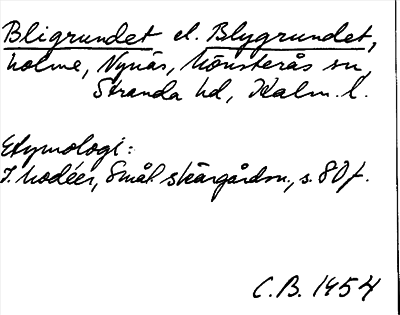 Bligrundet el. Blygrundet,
holme, Nynäs, Mönsterås sn,
Stranda hd, Kalm. l.
Etymologi:
I. Modéer, Smål. skärgårdsn., s. 80 f.
C.B. 1954